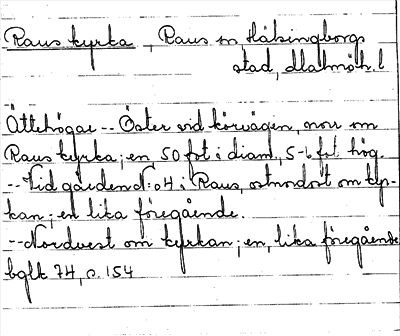 Raus kyrka, Raus sn, Hälsingborgs
stad, Malmöh. l
Ättehögar -- Öster vid körvägen, norr om
Raus kyrka; en, 50 fot i diam, 5-6 fot hög.
-- Vid gården No: 4 i Raus, ostnordost om kyr-
kan; en lika föregående.
-- Nordvest om kyrkan; en, lika föregående
bglk 74, s. 154